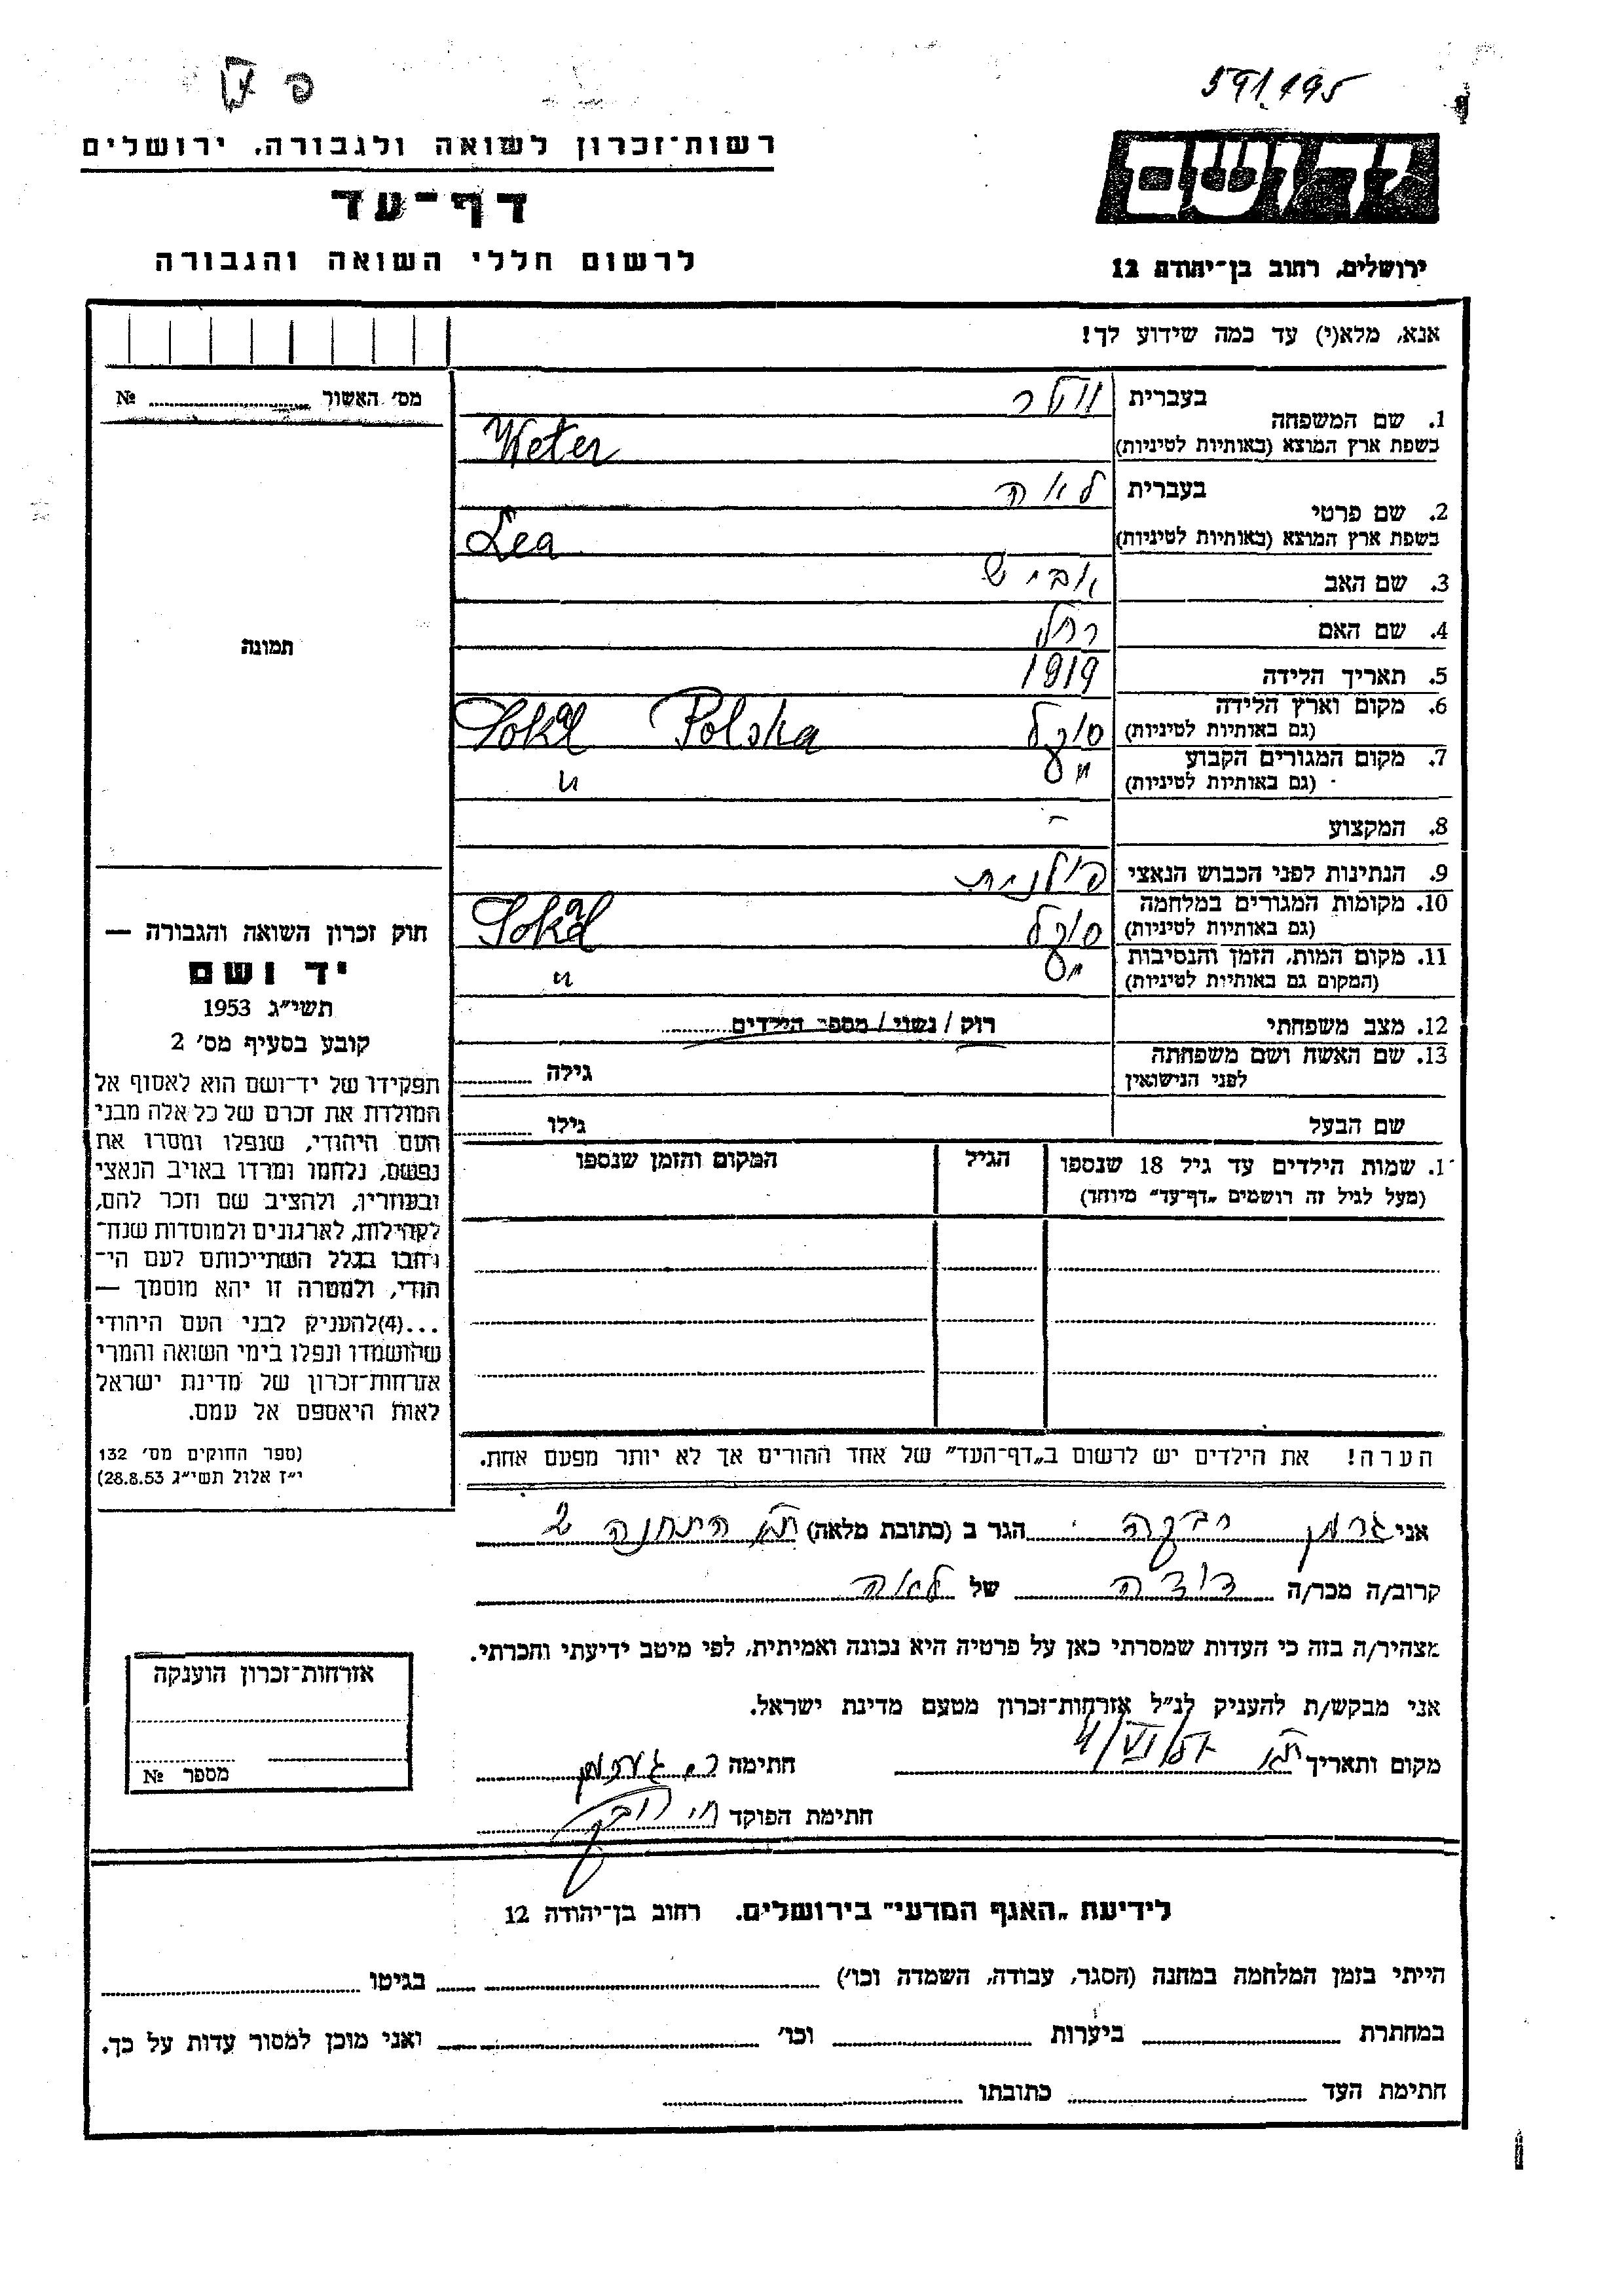 591.195
רשות-זכרון לשואה ולגבורה, ירושלים
דף-עד
לרשום חללי השואה והגבורה
יד ושם
ירושלים, רחוב בן-יהודה 12
אנא, מלא(י) עד כמה שידוע לך!
מס׳ האשור №
1. שם המשפחה
בעברית
בשפת ארץ המוצא (באותיות לטיניות) Weter
2. שם פרטי
בעברית לאה
בשפת ארץ המוצא (באותיות לטיניות) Lea
3. שם האב אביש
4. שם האם רחל
5. תאריך הלידה 1919
6. מקום וארץ הלידה
(גם באותיות לטיניות) סוקל Polska Sokal
7. מקום המגורים הקבוע
(גם באותיות לטיניות) "
8. המקצוע -
9. הנתינות לפני הכבוש הנאצי פולנית
10. מקומות המגורים במלחמה
(גם באותיות לטיניות) סוקל Sokal
11. מקום המות, הזמן והנסיבות
(המקום גם באותיות לטיניות) "
12. מצב משפחתי רוק / נשוי / מספר הילדים
13. שם האשה ושם משפחתה
לפני הנישואין גילה
שם הבעל גילו
1. שמות הילדים עד גיל 18 שנספו
(מעל לגיל זה רושמים „דף-עד״ מיוחד)
הגיל
המקום והזמן שנספו
הערה! את הילדים יש לרשום ב„דף-העד״ של אחד ההורים אך לא יותר מפעם אחת.
תמונה
חוק זכרון השואה והגבורה —
יד ושם
תשי״ג 1953
קובע בסעיף מס׳ 2
תפקידו של יד-ושם הוא לאסוף אל
המולדת את זכרם של כל אלה מבני
העם היהודי, שנפלו ומסרו את
נפשם, נלחמו ומרדו באויב הנאצי
ובעוזריו, ולהציב שם וזכר להם,
לקהילות, לארגונים ולמוסדות שנח-
רבו בגלל השתייכותם לעם הי-
הודי, ולמטרה זו יהא מוסמך —
...(4)להעניק לבני העם היהודי
שהושמדו ונפלו בימי השואה והמרי
אזרחות-זכרון של מדינת ישראל
לאות היאספם אל עמם.
(ספר החוקים מס׳ 132
י״ז אלול תשי״ג 28.8.53)
אני גרמן רבקה הגר ב (כתובת מלאה) ת"א התחנה 2
קרוב/ה מכר/ה דודה של לאה
מצהיר/ה בזה כי העדות שמסרתי כאן על פרטיה היא נכונה ואמיתית, לפי מיטב ידיעתי והכרתי.
אני מבקש/ת להעניק לנ״ל אזרחות-זכרון מטעם מדינת ישראל.
מקום ותאריך ת"א חתימה
חתימת הפוקד
אזרחות-זכרון הוענקה
מספר №
לידיעת „האגף המדעי״ בירושלים. רחוב בן-יהודה 12
הייתי בזמן המלחמה במחנה (הסגר, עבודה, השמדה וכו׳) בגיטו
במחתרת ביערות וכו׳ ואני מוכן למסור עדות על כך.
חתימת העד כתובתו